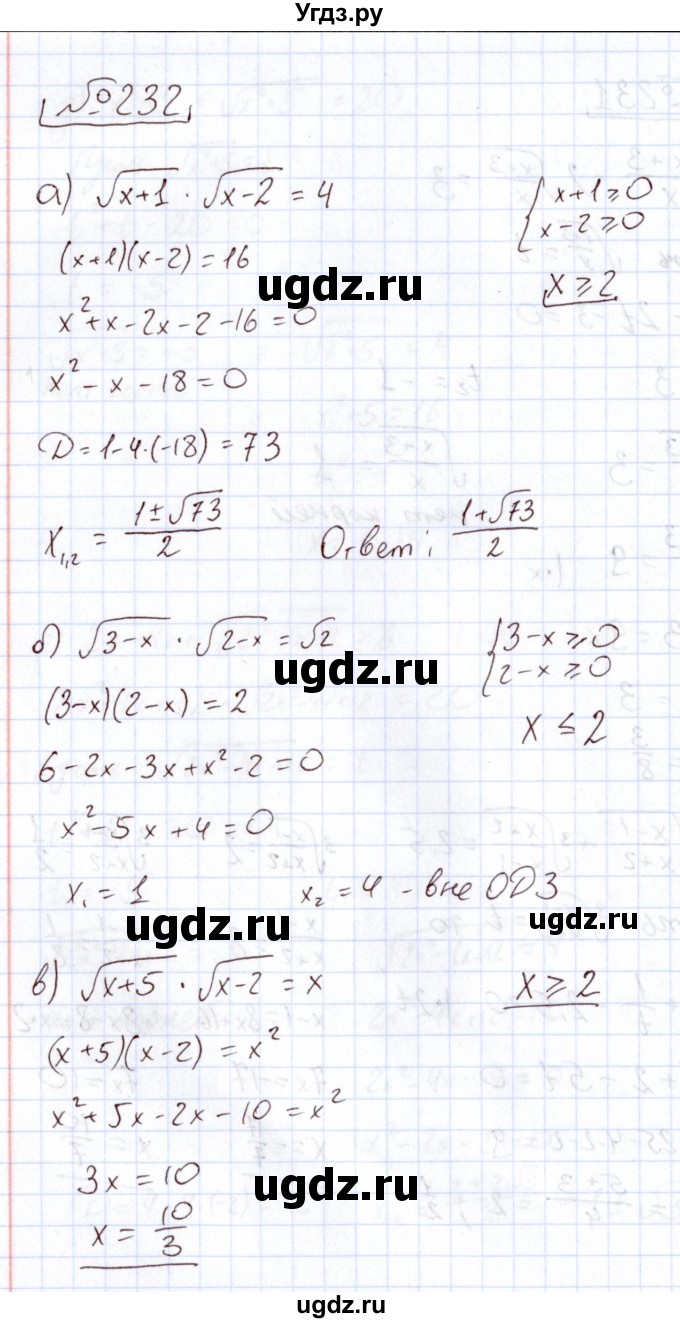 Угдз.ру
№232
а) √(x+1) · √(x-2) = 4
{x+1 ≥ 0
x-2 ≥ 0
(x+1)(x-2) = 16
ugdz.ru
x ≥ 2
x² + x - 2x - 2 - 16 = 0
x² - x - 18 = 0
D = 1-4·(-18) = 73
x₁,₂ = (1±√73)/2
Ответ: (1+√73)/2
б) √(3-x) · √(2-x) = √2
{3-x ≥ 0
2-x ≥ 0
ugdz.ru
(3-x)(2-x) = 2
x ≤ 2
6 - 2x - 3x + x² - 2 = 0
x² - 5x + 4 = 0
x₁ = 1
x₂ = 4 - вне ОДЗ
ugdz.ru
в) √(x+5) · √(x-2) = x
x ≥ 2
(x+5)(x-2) = x²
x² + 5x - 2x - 10 = x²
3x = 10
ugdz.ru
x = 10/3
ugdz.ru